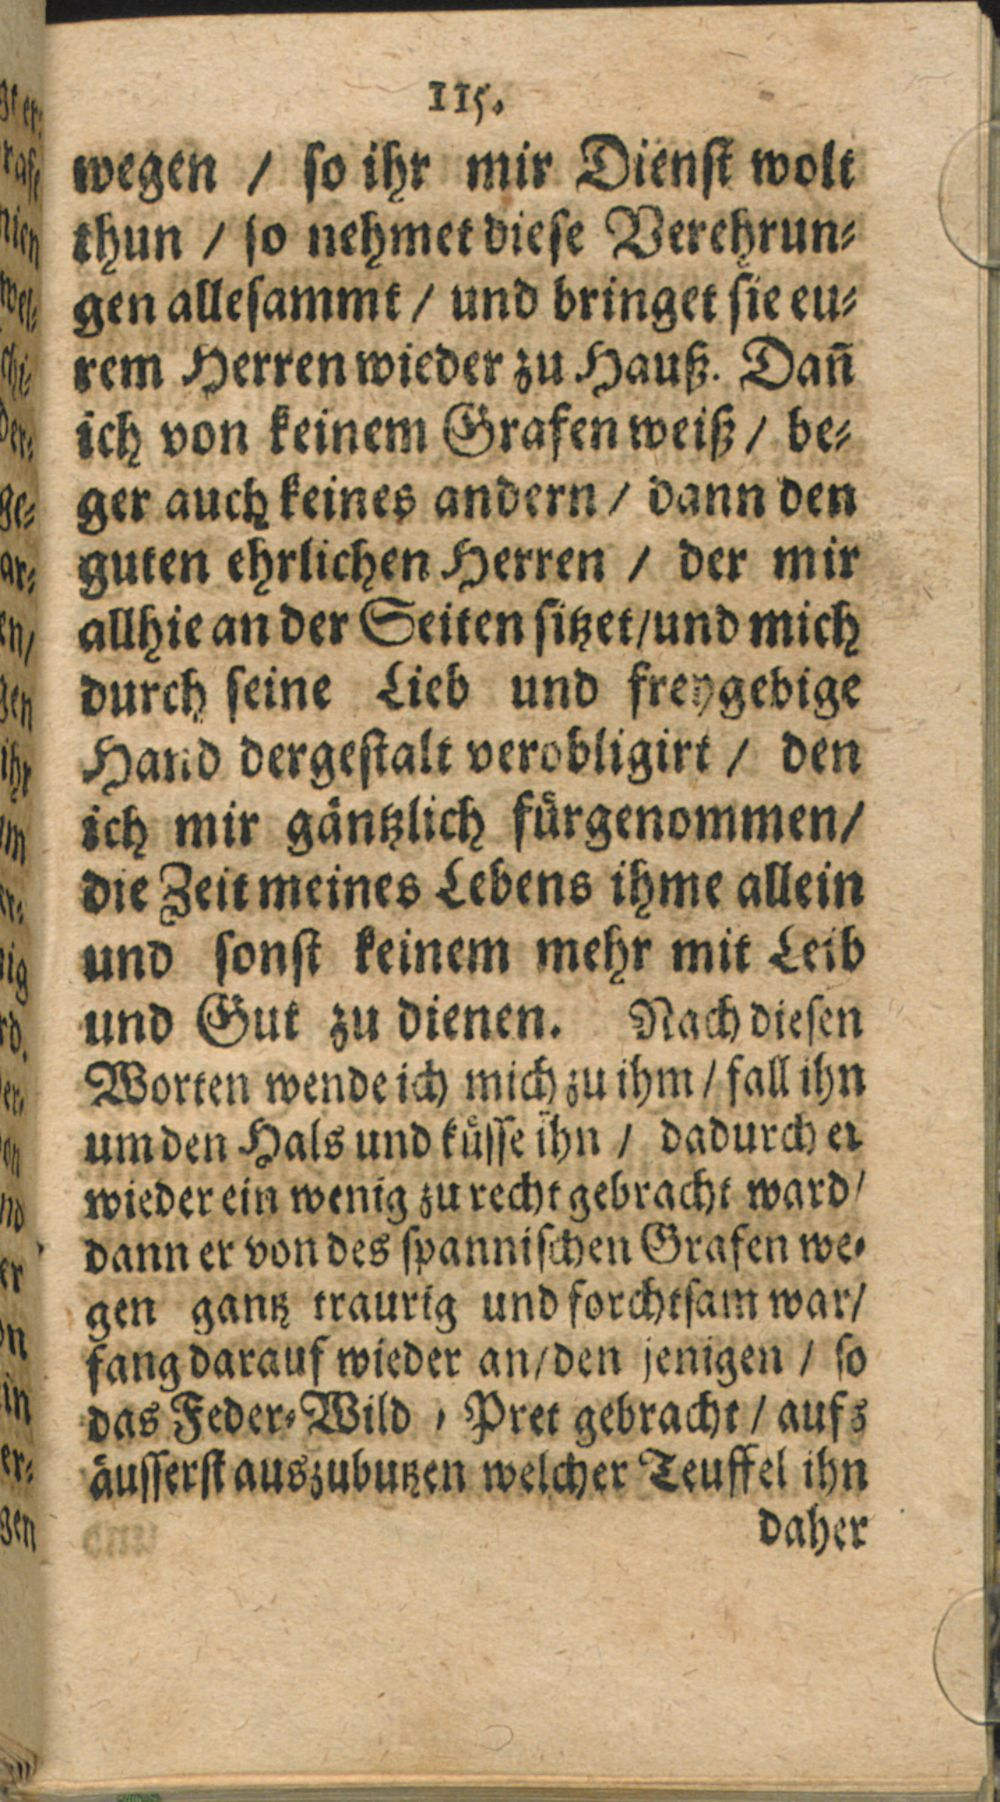 115.
wegen / so ihr mir Dienst wolt
thun / so nehmet diese Verehrun⸗
gen allesammt / und bringet sie eu⸗
rem Herren wieder zu Hauß. Dañ
ich von keinem Grafen weiß / be⸗
ger auch keines andern / dann den
guten ehrlichen Herren / der mir
allhie an der Seiten sitzet / und mich
durch seine Lieb und freygebige
Hand dergestalt verobligirt / den
ich mir gäntzlich fürgenommen /
die Zeit meines Lebens ihme allein
und sonst keinem mehr mit Leib
und Gut zu dienen. Nach diesen
Worten wende ich mich zu ihm / fall ihn
um den Hals und küsse ihn / dadurch er
wieder ein wenig zu recht gebracht ward /
dann er von des spannischen Grafen we⸗
gen gantz traurig und forchtsam war /
fang darauf wieder an / den jenigen / so
das Feder⸗Wild ⸗ Pret gebracht / aufs
äusserst auszubutzen welcher Teuffel ihn
daher